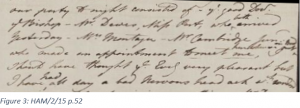 our party to night consisted of - ye. and Dr.
of Bristop - Mr. Dewes, Miss Port, she arrived
Yesterday - Mrs. Montagu Mr. Cambridge
who made an appointment to meet me,
I shd. have thought ye. Eveg. very pleasant but
I have had all day a bad Nervous head ach
Figure 3: HAM/2/15 p.52